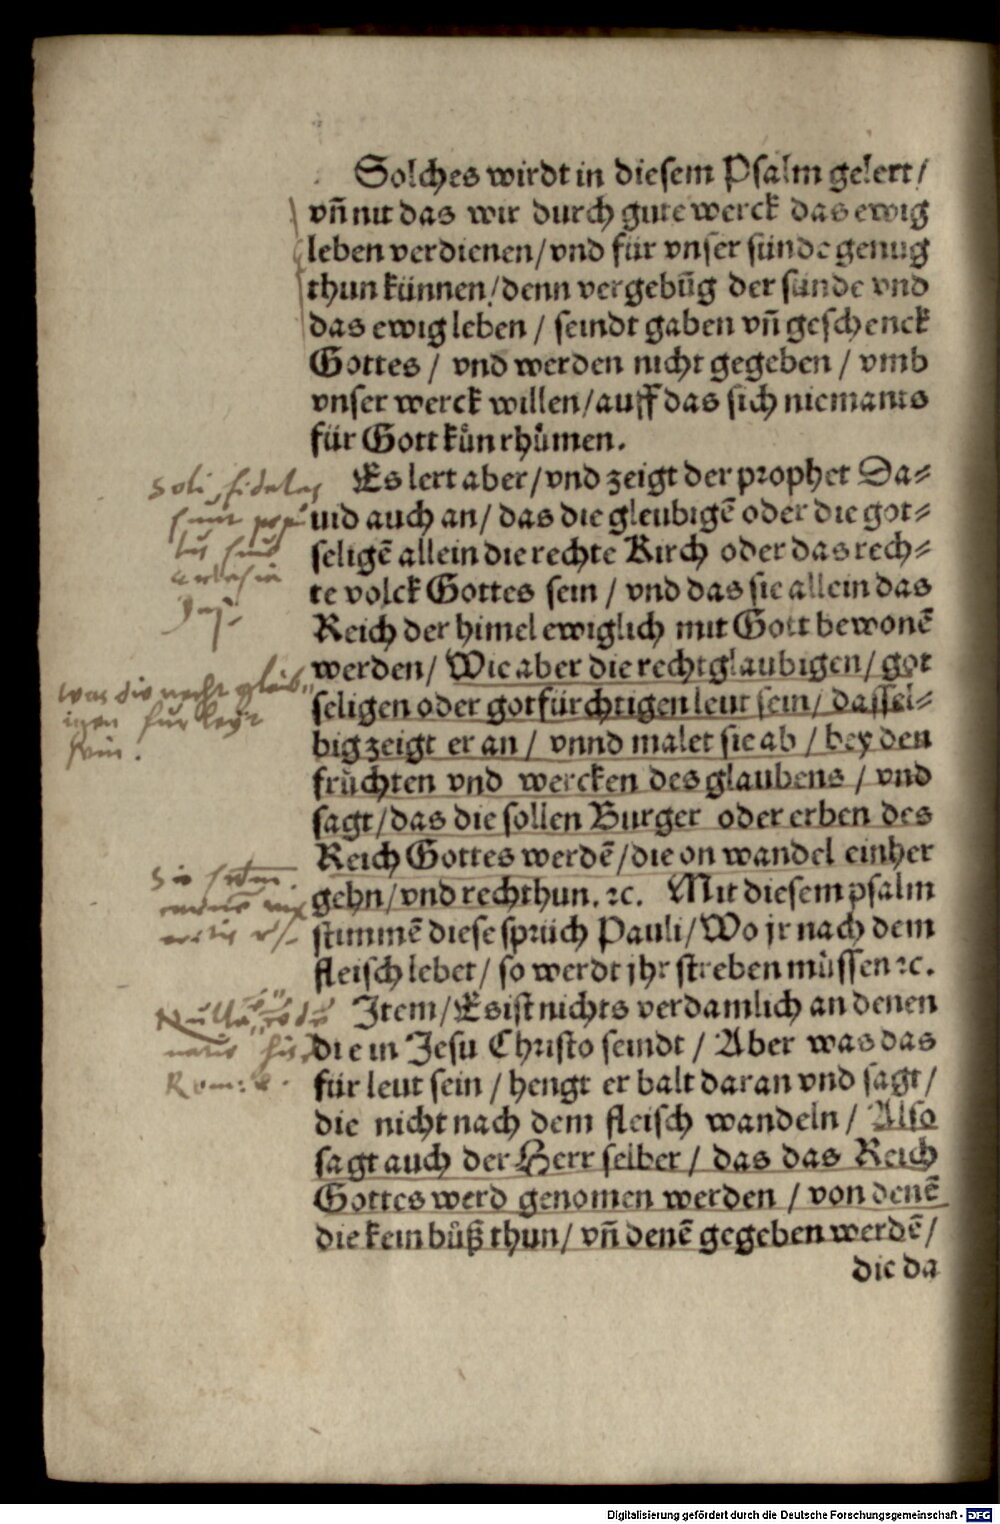 Solches wirdt in diesem Psalm gelert/
vn̄ nit das wir durch gute werck das ewig
leben verdienen/vnd für vnser sünde genug
thun künnen/denn vergebūg der sünde vnd
das ewig leben / seindt gaben vn̄ geschenck
Gottes / vnd werden nicht gegeben / vmb
vnser werck willen/auff das sich niemants
für Gott kün rhümen.
Es lert aber/vnd zeigt der prophet Da⸗
uid auch an/ das die gleubigē oder die got⸗
seligē allein die rechte Kirch oder das rech⸗
te volck Gottes sein / vnd das sie allein das
Reich der himel ewiglich mit Gott bewonē
werden/ Wie aber die rechtglaubigen/ got
seligen oder gotfürchtigen leut sein/ dassel⸗
big zeigt er an / vnnd malet sie ab / bey den
früchten vnd wercken des glaubens / vnd
sagt/das die sollen Burger oder erben des
Reich Gottes werdē/die on wandel einher
gehn/vnd recht thun. ꝛc. Mit diesem psalm
stimmē diese sprüch Pauli/Wo jr nach dem
fleisch lebet/ so werdt jhr streben müssen ꝛc.
Item/Es ist nichts verdamlich an denen
die in Jesu Christo seindt / Aber was das
für leut sein / hengt er balt daran vnd sagt/
die nicht nach dem fleisch wandeln/ Also
sagt auch der Herr selber/ das das Reich
Gottes werd genomen werden / von denē
die kein büß thun/ vn̄ denē gegeben werdē/
die da
Soli fideles
sunt popu
lus
was die recht gleub
igen fur leyt
sein.
Si secundum
carnem vix
Nulla
his
Rom: 8.
Digitalisierung gefördert durch die Deutsche Forschungsgemeinschaft - DFG